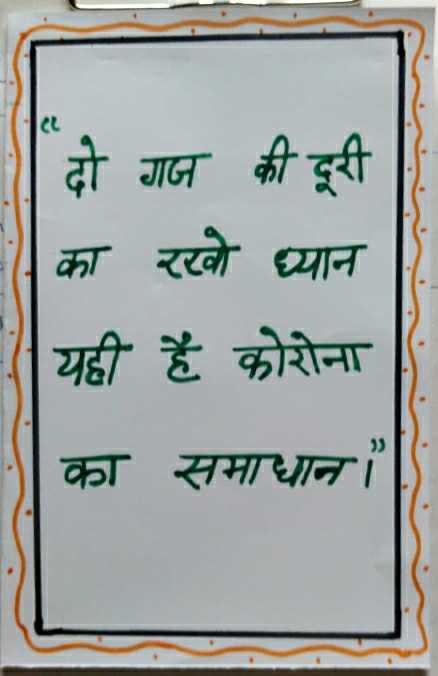 “दो गज की दूरी
का रखो ध्यान
यही है कोरोना
का समाधान।”